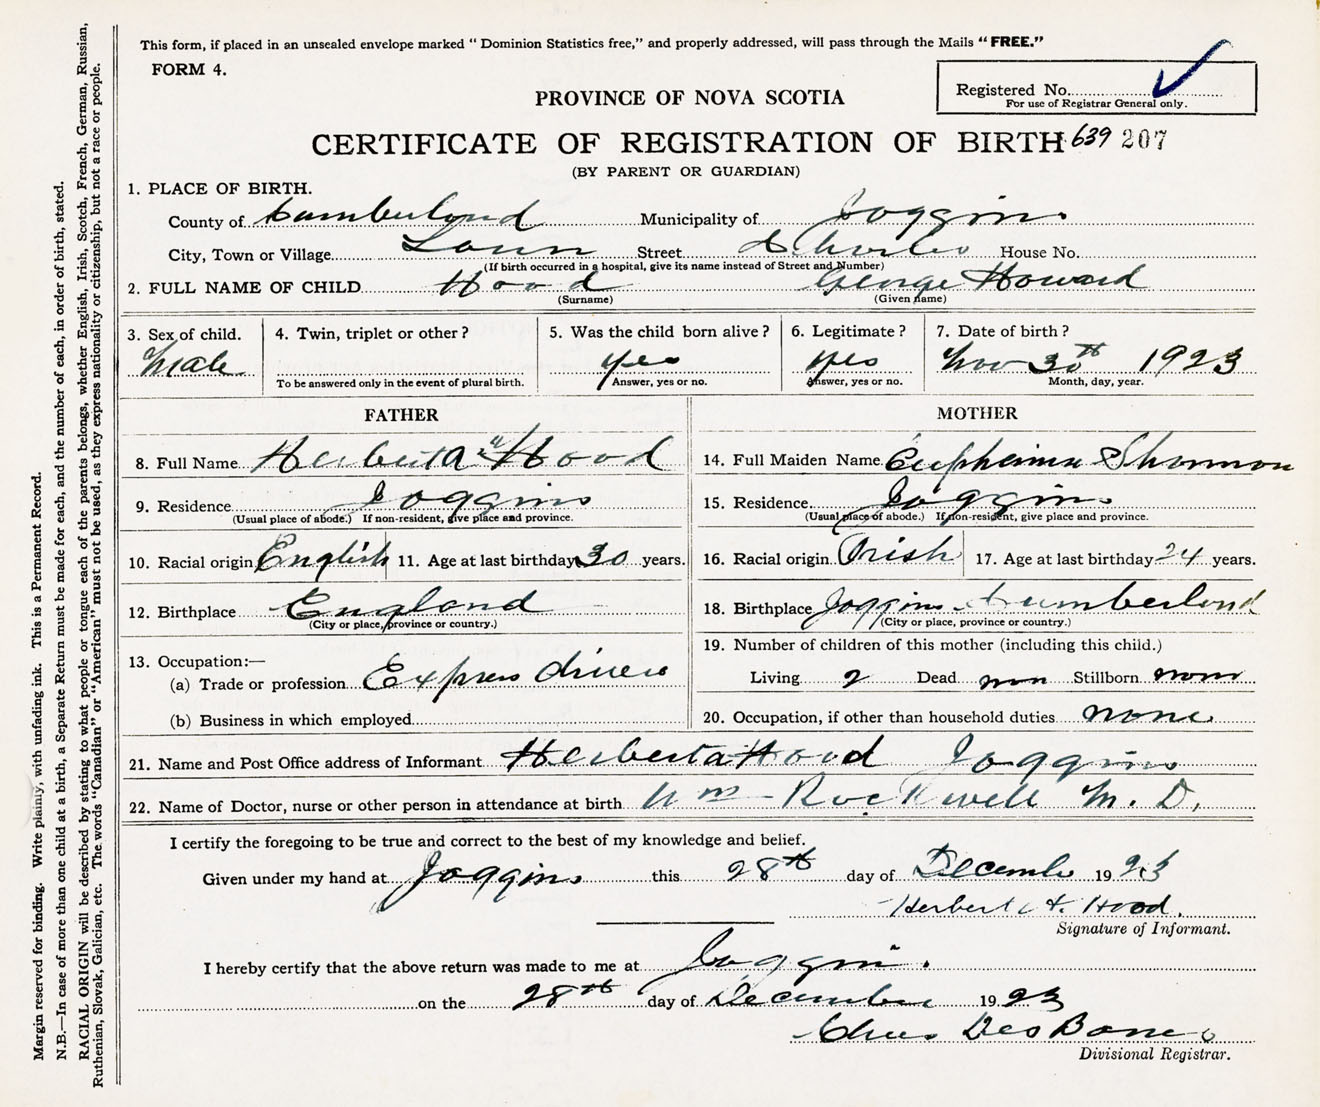 This form, if placed in an unsealed envelope marked " Dominion Statistics free," and properly addressed, will pass through the Mails " FREE."
FORM 4.
Registered No.
For use of Registrar General only.
PROVINCE OF NOVA SCOTIA
CERTIFICATE OF REGISTRATION OF BIRTH 639 207
(BY PARENT OR GUARDIAN)
1. PLACE OF BIRTH.
County of Cumberland Municipality of Joggins
City, Town or Village Street House No.
(If birth occurred in a hospital, give its name instead of Street and Number)
2. FULL NAME OF CHILD Hood George Howard
(Surname) (Given name)
3. Sex of child. 4. Twin, triplet or other ? 5. Was the child born alive ? 6. Legitimate ? 7. Date of birth ?
Male yes yes Nov 30th 1923
To be answered only in the event of plural birth. Answer, yes or no. Answer, yes or no. Month, day, year.
FATHER MOTHER
8. Full Name Herbert A Hood 14. Full Maiden Name Euphemia Shannon
9. Residence Joggins 15. Residence Joggins
(Usual place of abode.) If non-resident, give place and province. (Usual place of abode.) If non-resident, give place and province.
10. Racial origin English 11. Age at last birthday 30 years. 16. Racial origin Irish 17. Age at last birthday 24 years.
12. Birthplace England 18. Birthplace Joggins Cumberland
(City or place, province or country.) (City or place, province or country.)
13. Occupation:—
(a) Trade or profession Express driver
(b) Business in which employed
19. Number of children of this mother (including this child.)
Living 2 Dead non Stillborn none
20. Occupation, if other than household duties none
21. Name and Post Office address of Informant Herbert A Hood Joggins
22. Name of Doctor, nurse or other person in attendance at birth Wm Rockwell M. D.
I certify the foregoing to be true and correct to the best of my knowledge and belief.
Given under my hand at Joggins this 28th day of December 1923
Herbert A. Hood.
Signature of Informant.
I hereby certify that the above return was made to me at Joggins.
on the 28th day of December 1923
Chas DesBarres
Divisional Registrar.
Margin reserved for binding. Write plainly, with unfading ink. This is a Permanent Record.
N.B.—In case of more than one child at a birth, a Separate Return must be made for each, and the number of each, in order of birth, stated.
RACIAL ORIGIN will be described by stating to what people or tongue each of the parents belongs, whether English, Irish, Scotch, French, German, Russian,
Ruthenian, Slovak, Galician, etc. The words "Canadian" or "American" must not be used, as they express nationality or citizenship, but not a race or people.